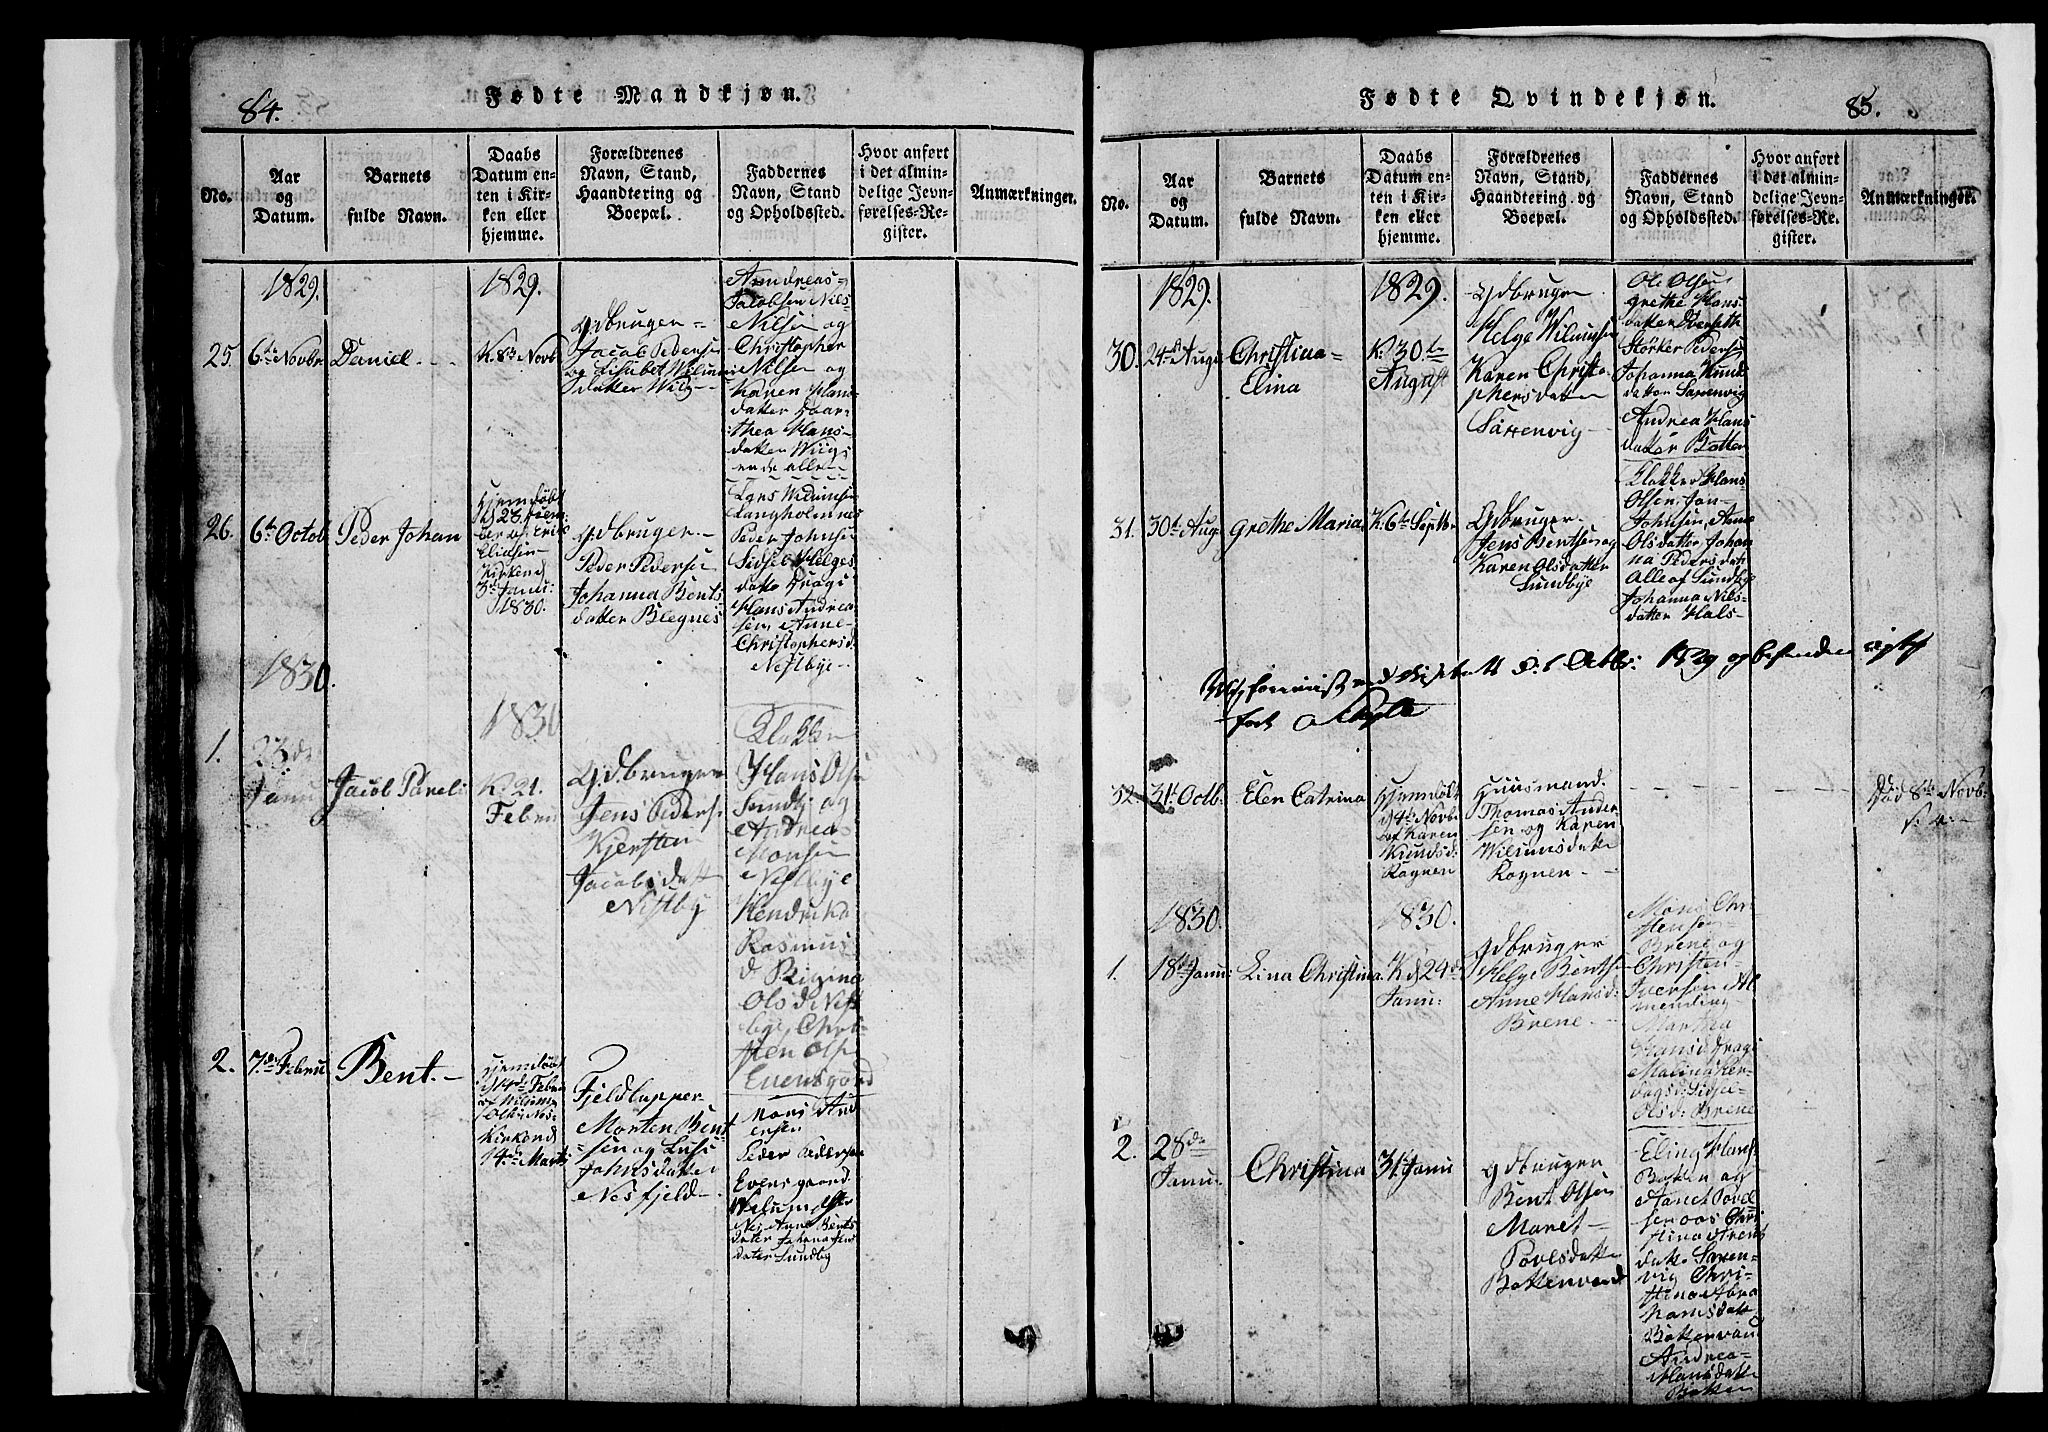 84.
Fødte Mandkjøn.
No.
Aar
og
Datum.
Barnets
fulde Navn.
Daabs
Datum en-
ten i Kir-
ken eller
hjemme.
Forældrenes
Navn, Stand,
Haandtering og
Boepæl.
Faddernes
Navn, Stand
og Opholdssted.
Hvor anført
i det almin-
delige Jevn-
førelses-Re-
gister.
Anmærkninger.
1829.
25.
6te Novbr
Daniel
1829.
K. 8de Novb
Gdbruger
Jacob Pedersen
og Lisabet Wilums
datter Wiig
Andreas
Jacobsen Nils
Nilsen og
Christopher
Nilsen og
Karen Hans-
datter Daar-
thea Hans-
datter Wiig
ende alle
26.
6te Octob
Peder Johan
Hjemdøbt
Eliasen
Kirken d
3de Janu:
1830.
Gdbruger
Peder Pedersen
Johanna Bents
datter Blegnes
Lars Wilumsen
Langholmnes
Peder Johnsen
Sidsel Helges
datter Dragi
Hans Andrea
sen, Anne
Christophersd.
Nestbye
1830.
1.
23de
Janu
Jacob Pareli
1830
K. 21.
Febru
Gdbruger
Jens Peders.
Kjersten
Jacobsdatt
Nestby
Klokker
Hans Olsen
Sundby og
Andreas
Monsen
Nestbye
Hendrika
Rasmus
d Regina
Olsd Nest
bye, Chri-
sten Ols
Evensgaard
2.
7de Febru
Bent.
Hjemdøbt
14de Febru
af Wilum
Nes
Kirken d
14de Marts
Fjeldlapper
Morten Bent
sen og Lusi
Johnsdatter
Nesfjeld
Mons And
ersen
Peder Pedersen
Evensgaard
Wilum Olsen
Nes Anne Bents
dater Johana Jens
dater Sundby
Fødte Qvindekjøn.
85.
No.
Aar
og
Datum.
Barnets
fulde Navn.
Daabs
Datum en-
ten i Kir-
ken eller
hjemme.
Forældrenes
Navn, Stand,
Haandtering og
Boepæl.
Faddernes
Navn, Stand
og Opholdssted.
Hvor anført
i det almin-
delige Jevn-
førelses-Re-
gister.
Anmærkninger.
1829.
30.
24de Augu
Christina
Elina
1829.
K: 30te
August
Gdbruger
Helge Wilumsen
Karen Christo
phersdatter
Sørrenvig
Ole Olsen
Grethe Hans-
datter
Størker Pedersen
Johanna Knud
datter Sørrenvig
Andrea Hans
datter Botten
31.
30te Aug
Grethe Maria
K: 6te Septbr
Gdbruger
Jens Bentsen og
Karen Olsdatter
Sundbye
Klokker Hans
Olsen, Jon
Johnsen, Anne
Olsdatter Johan
na Pedersdatt
Alle af Sundbye
Johanna Nils-
datter Hals
1829 og befunden rigtig
ført
32.
31te Octb.
Elen Catrina
Hjemdøbt
d 4de Novb
af Karen
Knudsd:
Rognen
Huusmand
Thomas Ander
sen og Karen
Wilumsdatter
Rognen
Død 8de Novb:
1830.
1.
18de Janu:
Lina Christina
1830.
K d 24de
Janu:
Gdbruger
Helge Bentsen
Anne Hansd:
Brene
Mons Chr-
stensen
Brene og
Christen
Iversen Al
mending
Martha
Hansd Dragi
Malina
Olsd: Brene
2.
28de
Janu:
Christina
31te Janu
Gdbruger
Bent Olsen
Maret
Povelsdatter
Bottenvand
Eling Hans
Botten og
Povel
sen Chri
stina Arens
datter Søren-
vig Chri-
stina Abra
hamsdatt
Bottenvand
Andrea
Hansdatter
Botten